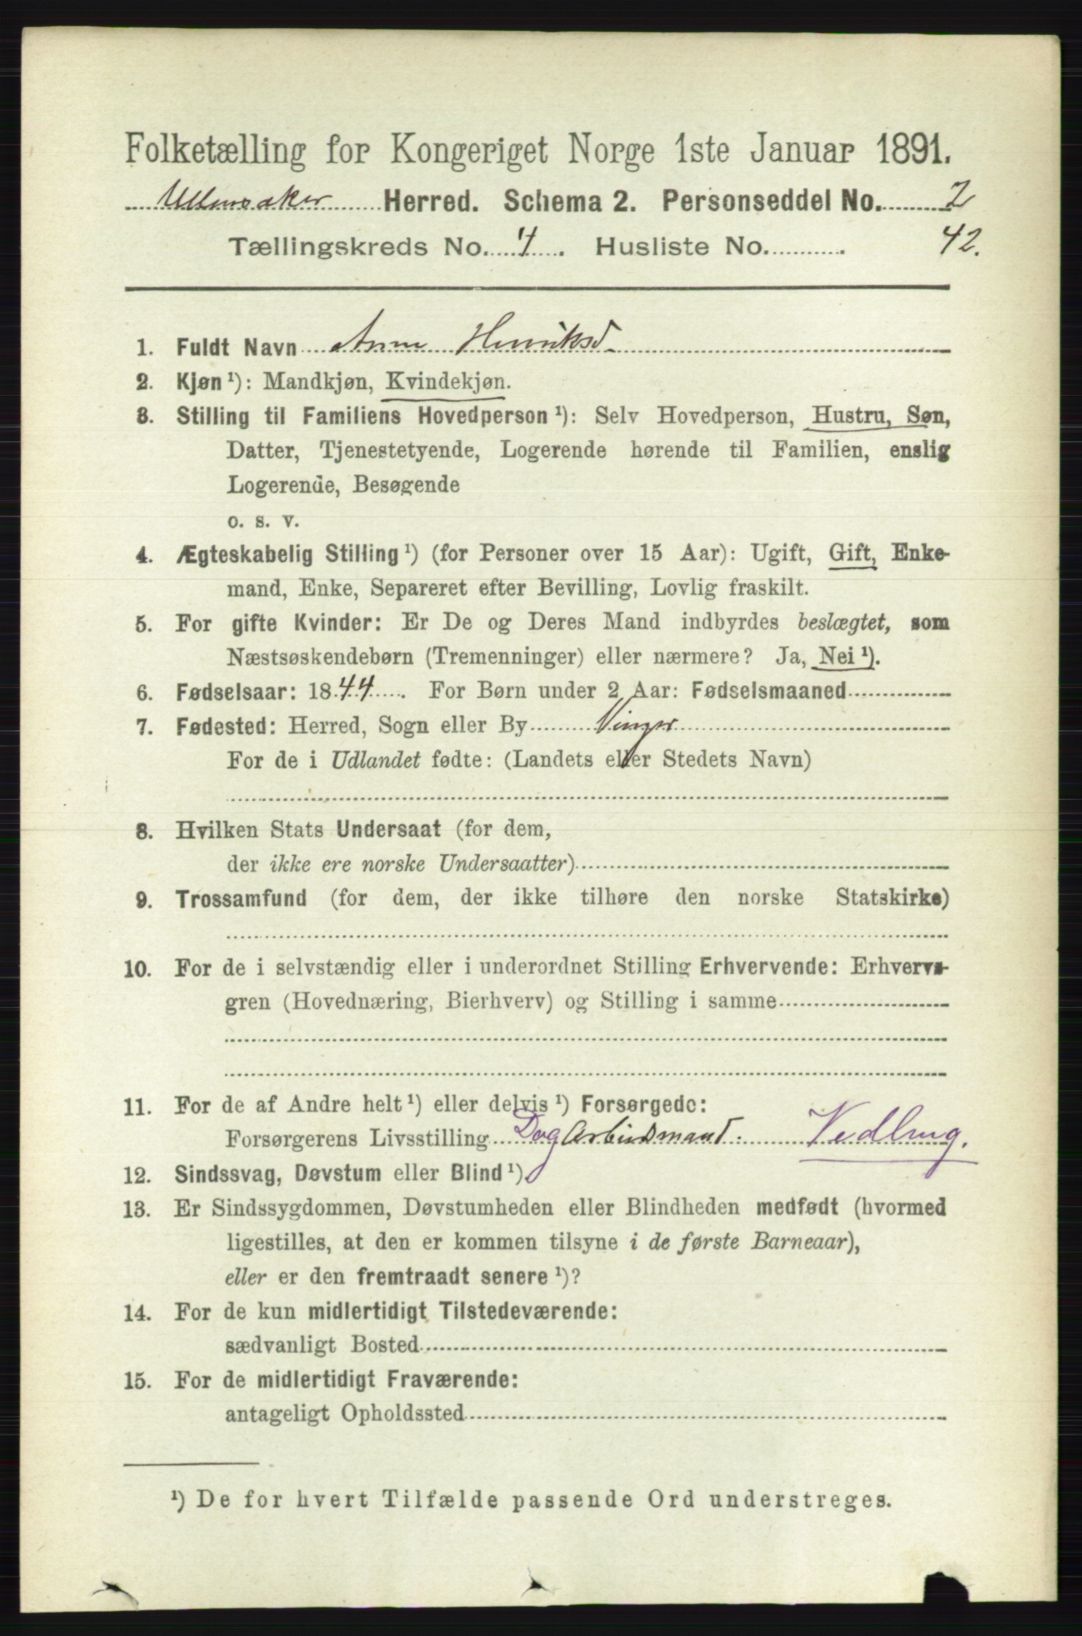 Folketælling for Kongeriget Norge 1ste Januar 1891.
Ullensaker Herred. Schema 2. Personseddel No. 2
Tællingskreds No. 4. Husliste No. 42.
1. Fuldt Navn Anne Henriksd.
2. Kjøn ¹): Mandkjøn, Kvindekjøn.
3. Stilling til Familiens Hovedperson ¹): Selv Hovedperson, Hustru, Søn,
Datter, Tjenestetyende, Logerende hørende til Familien, enslig
Logerende, Besøgende
o. s. v.
4. Ægteskabelig Stilling ¹) (for Personer over 15 Aar): Ugift, Gift, Enke-
mand, Enke, Separeret efter Bevilling, Lovlig fraskilt.
5. For gifte Kvinder: Er De og Deres Mand indbyrdes beslægtet, som
Næstsøskendebørn (Tremenninger) eller nærmere? Ja, Nei ¹).
6. Fødselsaar: 1844. For Børn under 2 Aar: Fødselsmaaned
7. Fødested: Herred, Sogn eller By Vinger
For de i Udlandet fødte: (Landets eller Stedets Navn)
8. Hvilken Stats Undersaat (for dem,
der ikke ere norske Undersaatter)
9. Trossamfund (for dem, der ikke tilhøre den norske Statskirke)
10. For de i selvstændig eller i underordnet Stilling Erhvervende: Erhvervs-
gren (Hovednæring, Bierhverv) og Stilling i samme
11. For de af Andre helt ¹) eller delvis ¹) Forsørgede:
Forsørgerens Livsstilling Dag Arbeidsmand. Vedhug.
12. Sindssvag, Døvstum eller Blind ¹)
13. Er Sindssygdommen, Døvstumheden eller Blindheden medfødt (hvormed
ligestilles, at den er kommen tilsyne i de første Barneaar),
eller er den fremtraadt senere ¹)?
14. For de kun midlertidigt Tilstedeværende:
sædvanligt Bosted
15. For de midlertidigt Fraværende:
antageligt Opholdssted
¹) De for hvert Tilfælde passende Ord understreges.